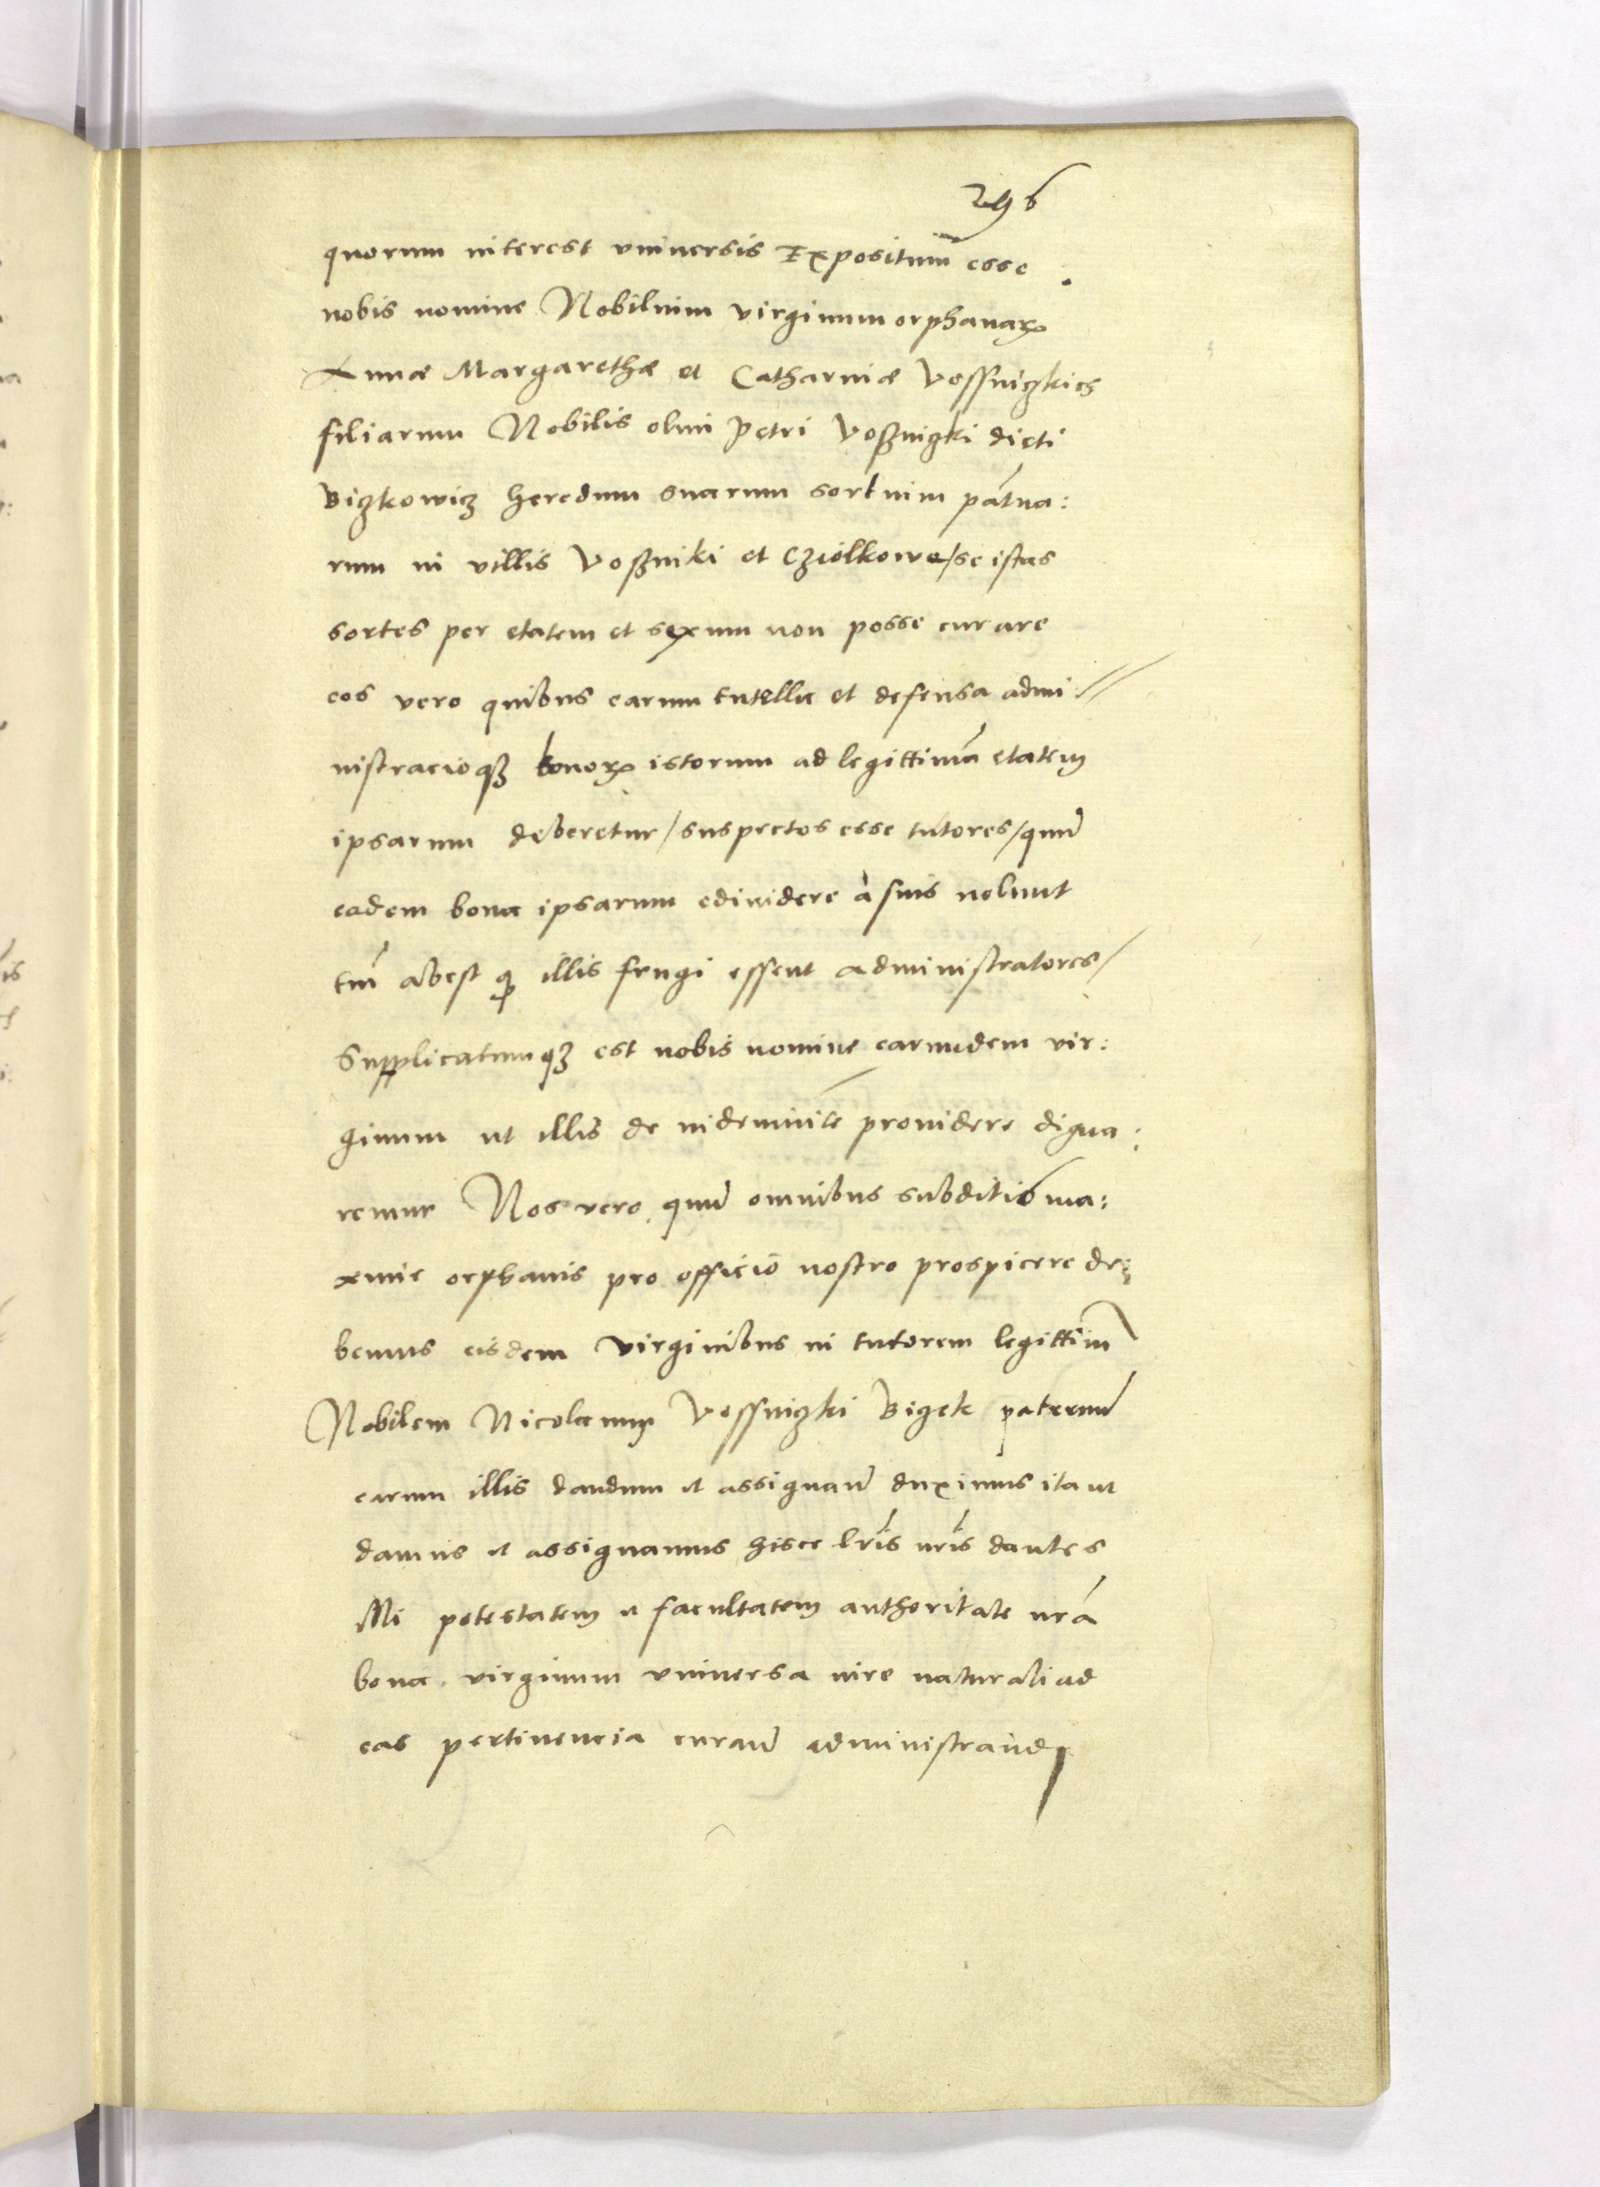 296
quorum interest vniuersis Expositum̄ esse
nobis nomine Nobilium virginum orphanaꝝ
Annæ Margarethæ et Catharinæ Vossniczkich
filiarum Nobilis olim Petri Voßniczki dicti
Biczkowicz heredum suarum sortium pãtua:
rum in villis Voßniki et Cziolkowo/se istas
sortes per etatem et sexum non posse curare
eos vero quibus earum tutella et defensa admi//
nistracioqꝫ bonoꝝ istorum ad legittimã etatem
ipsarum deberetur/suspectos esse tutores/qum̃
eadem bona ipsarum ediuidere à suis nolunt
tm̃ abest ꝙ illis frugi essent administratores/
Supplicatumqꝫ est nobis nomine earundem vir:
ginum ut illis de indemnitẽ prouidere digna:
remur Nos vero qum̃ omnibus subditis ma:
xime orphanis pro officio nostro prospicere de:
bemus eisdem virginibus in tutorem legittim̃
Nobilem Nicolaum Vossniczki Bigek patruum̃
earum illis dandum et assignañ duximus ita ut
damus et assignamus hisce lr̃is nr̃is dantes
Illi potestatem et facultatem authoritate nr̃a
bona virginum vniuersa iure naturali ad
eas pertinencia curañ administrandi